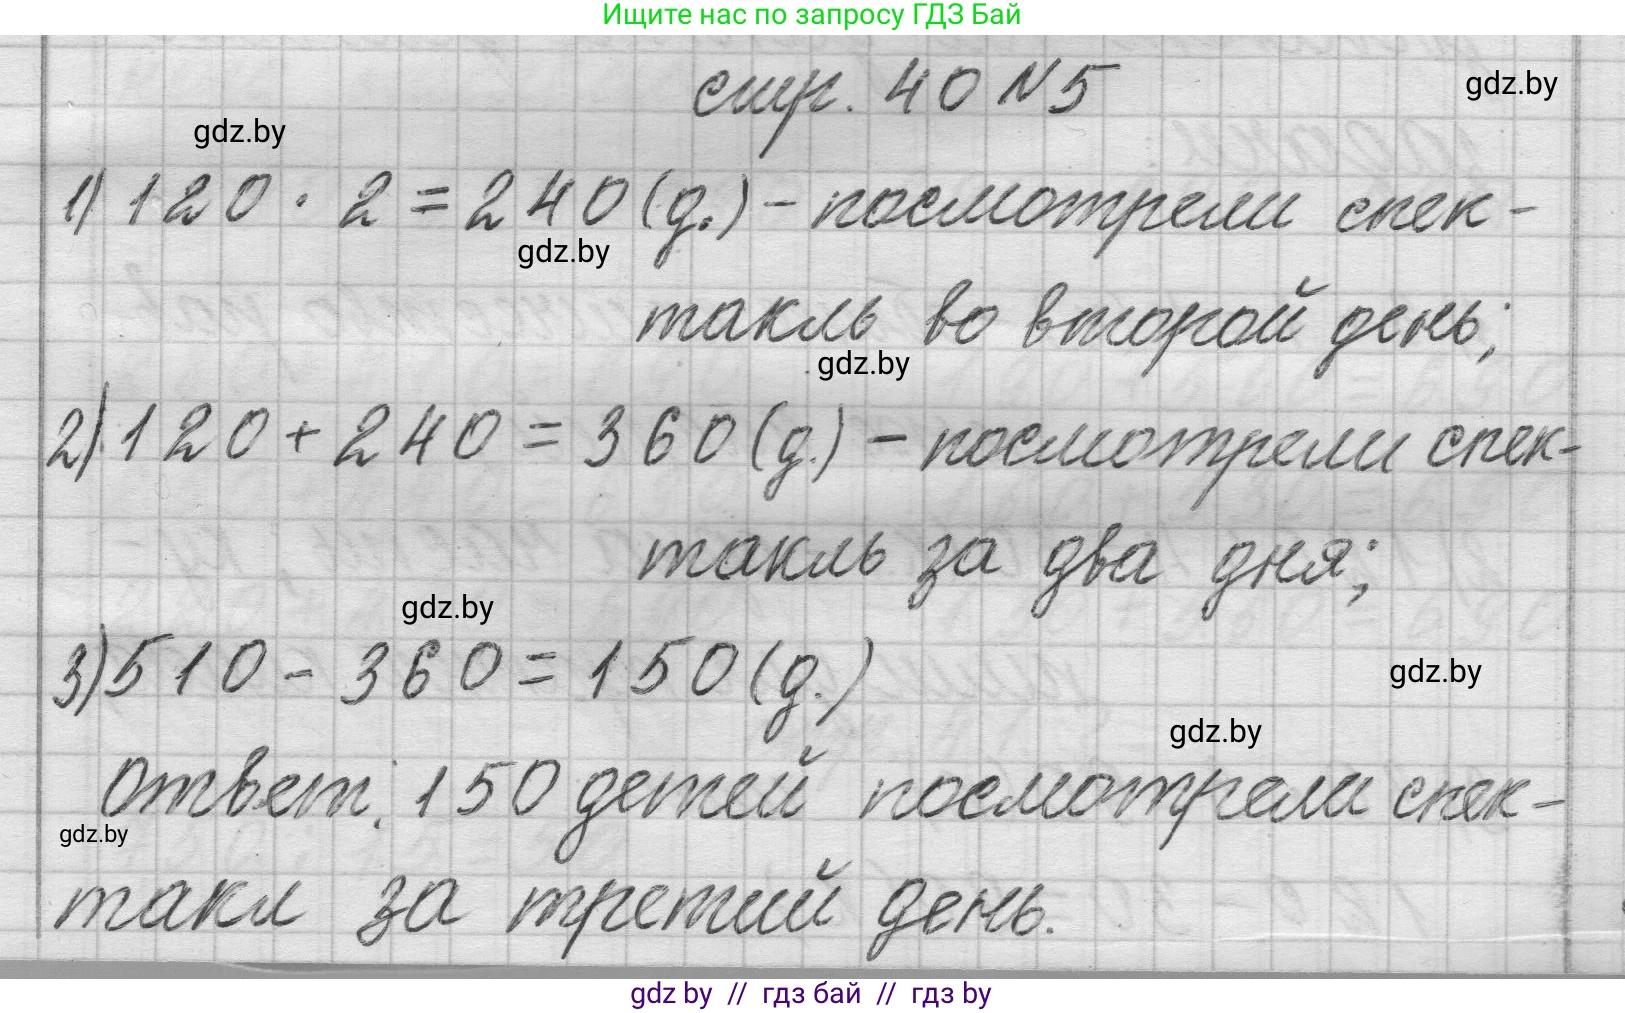 Ищите нас по запросу ГДЗ Бай
стр. 40 №5
gdz.by
gdz.by
1) 120 · 2 = 240 (д.) - посмотрели спек-
gdz.by
такль во второй день;
gdz.by
2) 120 + 240 = 360 (д.) - посмотрели спек-
такль за два дня;
gdz.by
3) 510 - 360 = 150 (д.)
gdz.by
gdz.by
Ответ: 150 детей посмотрели спек-
gdz.by
такл за третий день.
gdz by // гдз бай // гдз by